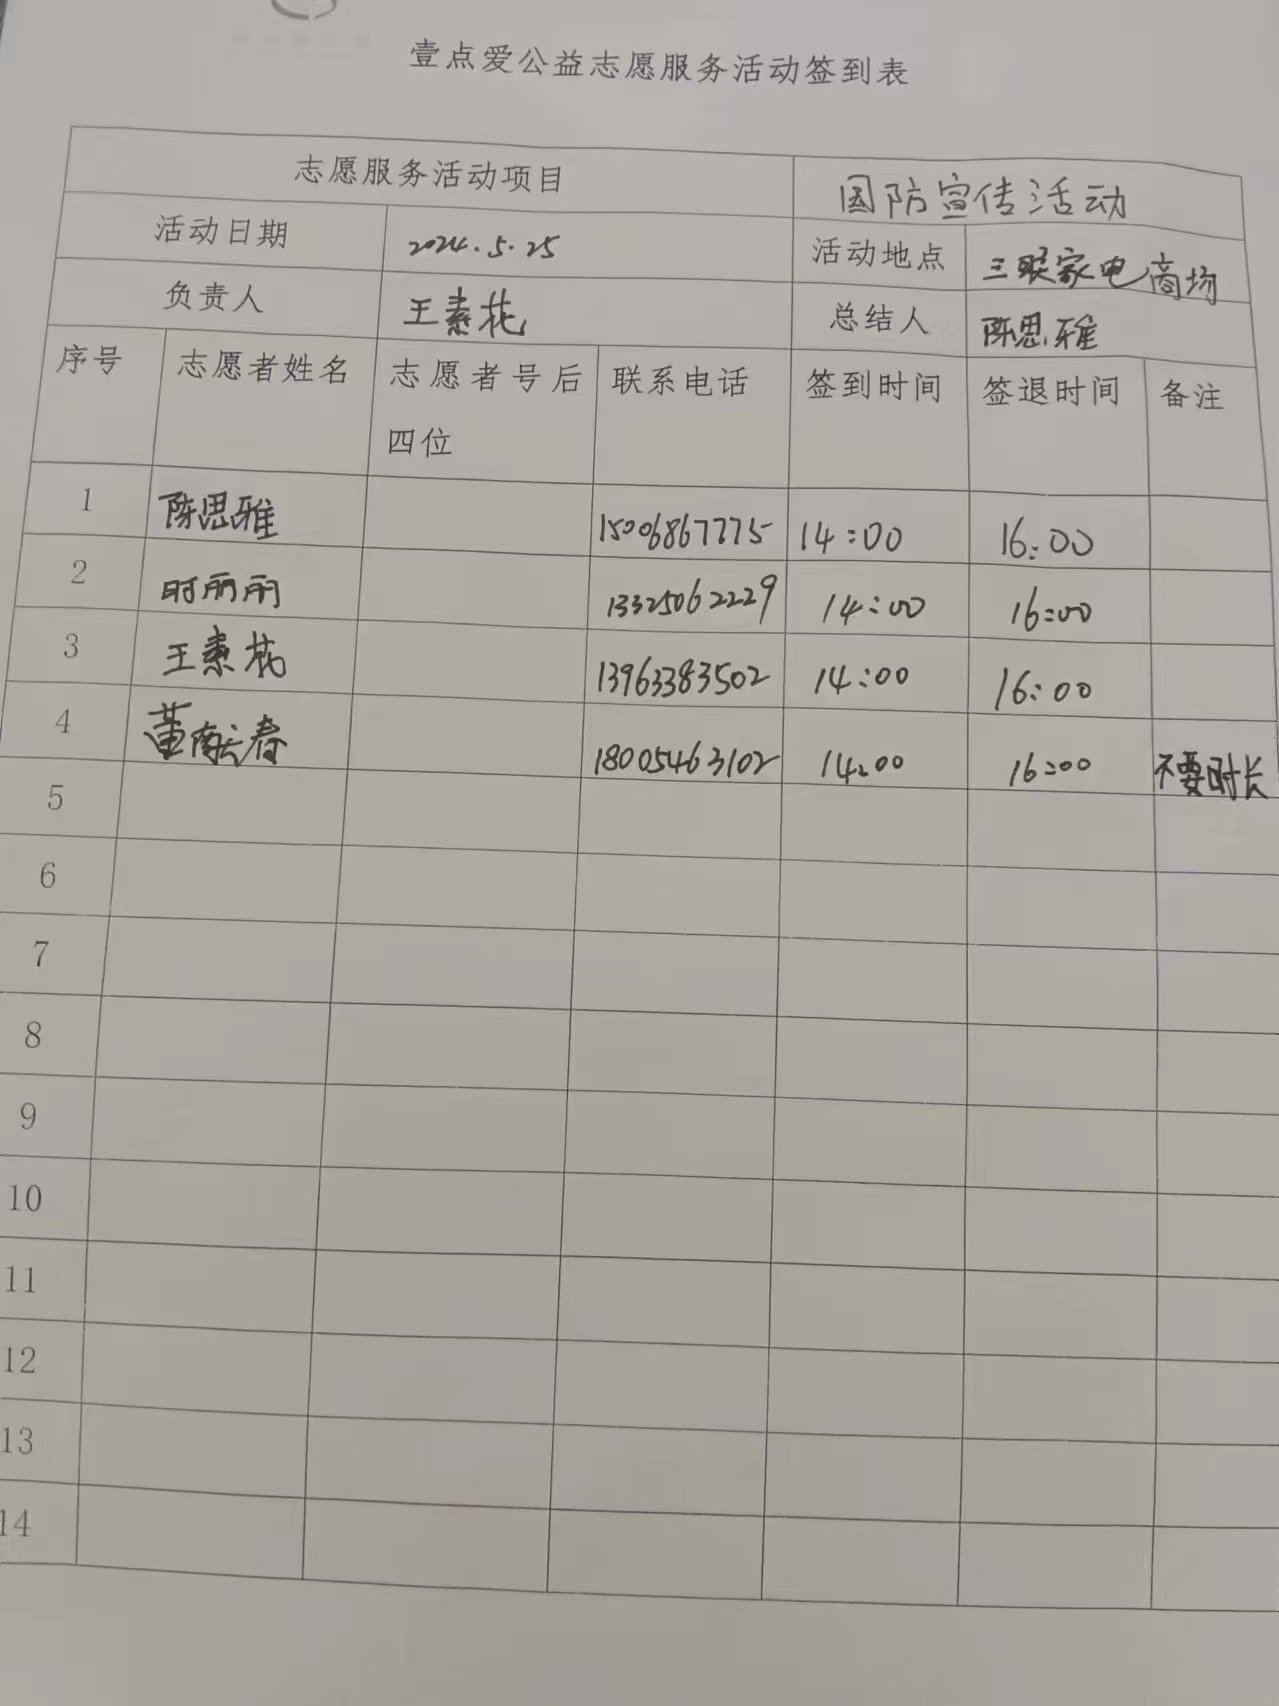 壹点爱公益志愿服务活动签到表
志愿服务活动项目 国防宣传活动
活动日期 2024.5.25 活动地点 三联家电商场
负责人 王素花 总结人 陈思雅
序号 志愿者姓名 志愿者号后四位 联系电话 签到时间 签退时间 备注
1 陈思雅 15006867775 14:00 16:00
2 时丽丽 13325062229 14:00 16:00
3 王素花 13963383502 14:00 16:00
4 董献春 18005463102 14:00 16:00 不要时长
5
6
7
8
9
10
11
12
13
14